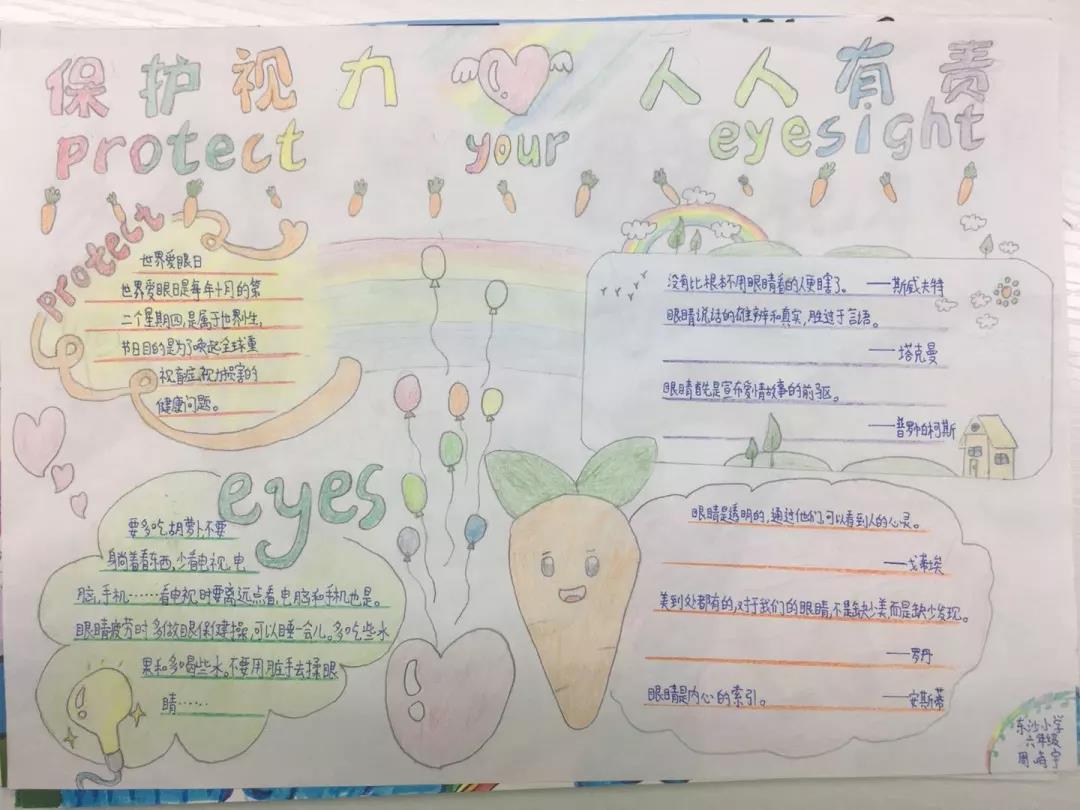 保护视力 人人有责
protect your eyesight
protect
世界爱眼日
世界爱眼日是每年十月的第
二个星期四,是属于世界性,
节日目的是为了唤起全球重
视盲症,视力损害的
健康问题。
没有比根本不用眼睛看的人更瞎了。 ——斯威夫特
眼睛说话的雄辩和真实,胜过于言语。
——塔克曼
眼睛首先是宣布爱情故事的前驱。
——普罗帕柯斯
eyes
要多吃胡萝卜,不要
身躺着看东西,少看电视,电
脑,手机……看电视时要离远点看,电脑和手机也是。
眼睛疲劳时多做眼保健操,可以睡一会儿。多吃些水
果和多喝些水。不要用脏手去揉眼
睛……
眼睛是透明的,通过他们,可以看到人的心灵。
——戈蒂埃
美到处都有的,对于我们的眼睛,不是缺少美而是缺少发现。
——罗丹
眼睛是内心的索引。 ——安斯蒂
东沙小学
六年级